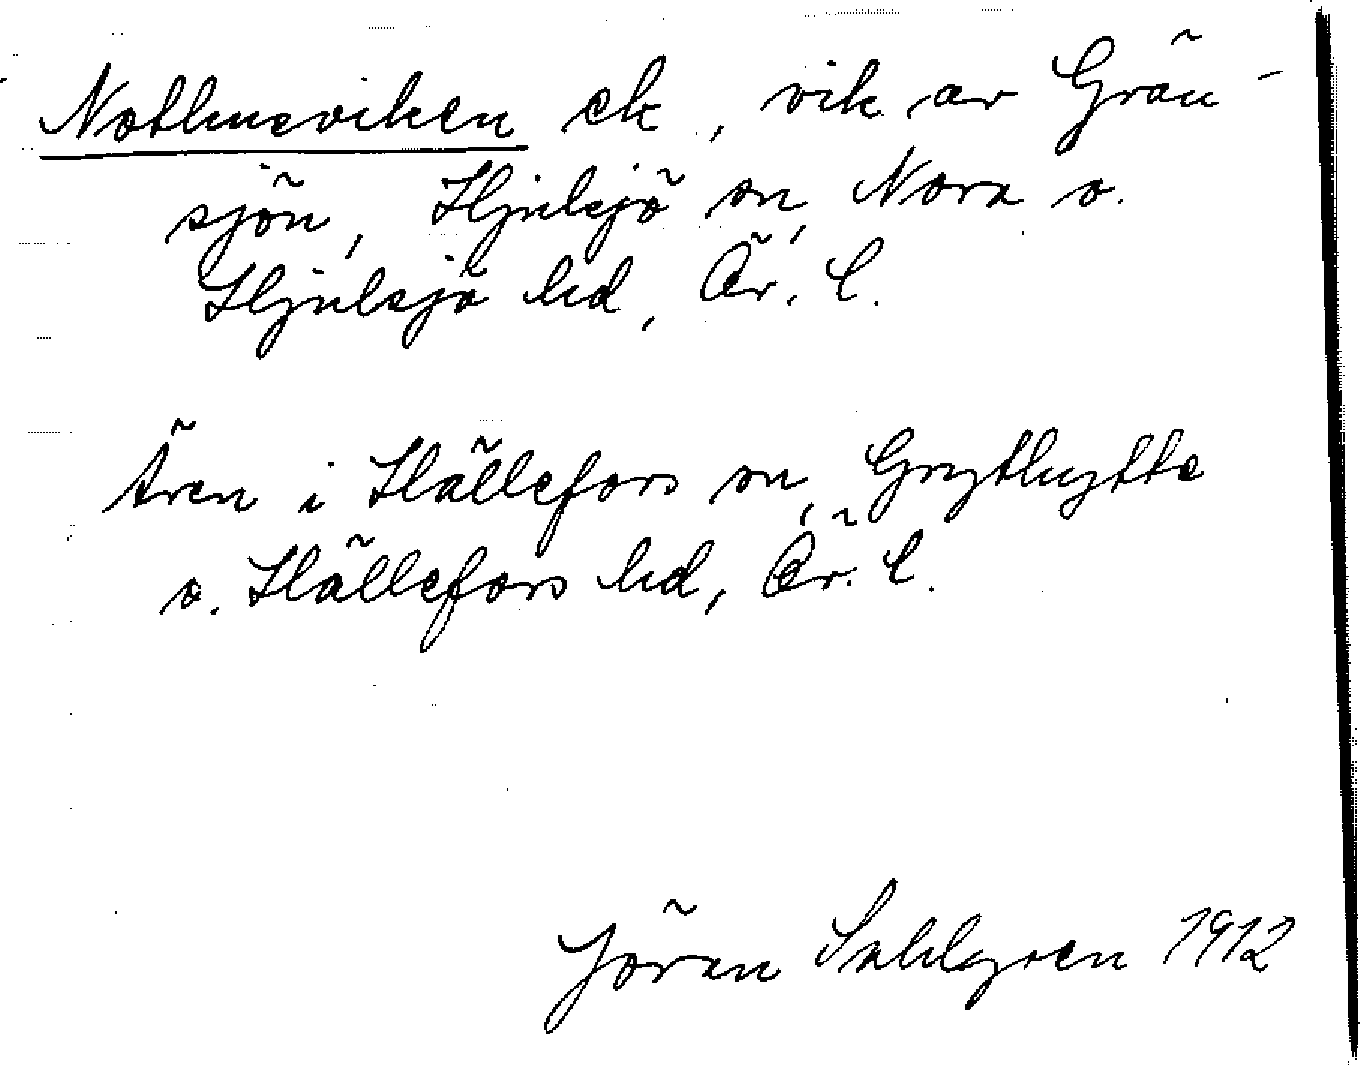 Nothusviken ek, vik av Grän-
sjön, Hjulsjö sn, Nora o.
Hjulsjö hd, Ör. l.
Ären i Hällefors sn, Grythytte
o. Hällefors hd, Ör. l.
Jöran Sahlgren 1912